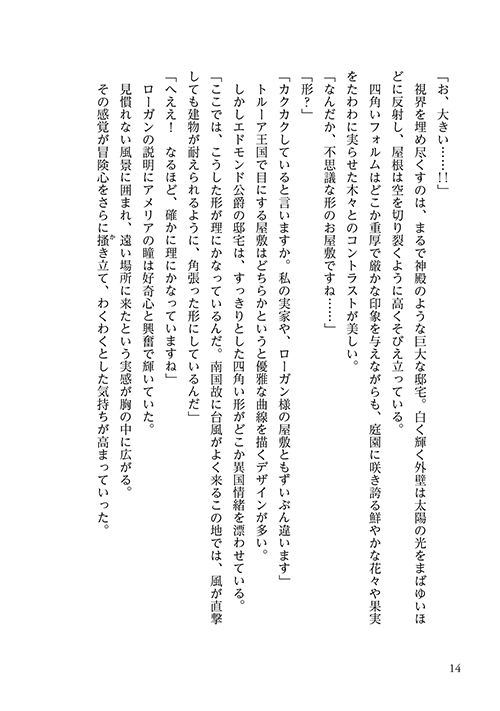 「お、大きい……!!」
　視界を埋め尽くすのは、まるで神殿のような巨大な邸宅。白く輝く外壁は太陽の光をまばゆいほ
どに反射し、屋根は空を切り裂くように高くそびえ立っている。
　四角いフォルムはどこか重厚で厳かな印象を与えながらも、庭園に咲き誇る鮮やかな花々や果実
をたわわに実らせた木々とのコントラストが美しい。
「なんだか、不思議な形のお屋敷ですね……」
「形？」
「カクカクしていると言いますか。私の実家や、ローガン様の屋敷ともずいぶん違います」
　トルーア王国で目にする屋敷はどちらかというと優雅な曲線を描くデザインが多い。
　しかしエドモンド公爵の邸宅は、すっきりとした四角い形がどこか異国情緒を漂わせている。
「ここでは、こうした形が理にかなっているんだ。南国故に台風がよく来るこの地では、風が直撃
しても建物が耐えられるように、角張った形にしているんだ」
「へええ！　なるほど、確かに理にかなっていますね」
　ローガンの説明にアメリアの瞳は好奇心と興奮で輝いていた。
　見慣れない風景に囲まれ、遠い場所に来たという実感が胸の中に広がる。
　その感覚が冒険心をさらに掻き立て、わくわくとした気持ちが高まっていった。
14